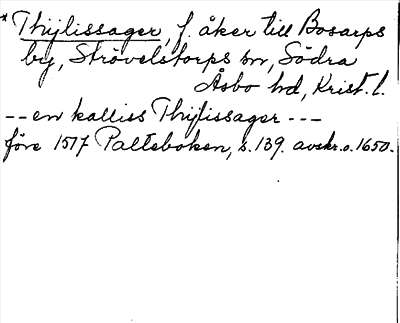 * Thijlissager, f. åker till Bosarps
by, Strövelstorps sn, Södra
Åsbo hd, Krist. l.
-- en kalliss Thijlissager ---
före 1517 Palteboken, s. 139. avskr. o. 1650.